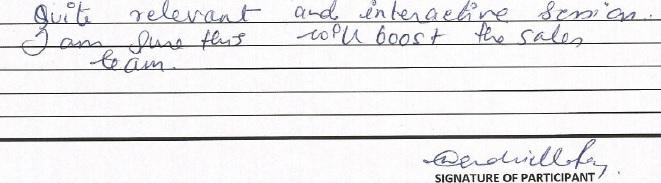 Quite relevant and interactive session.
I am sure this will boost the sales
team.
SIGNATURE OF PARTICIPANT